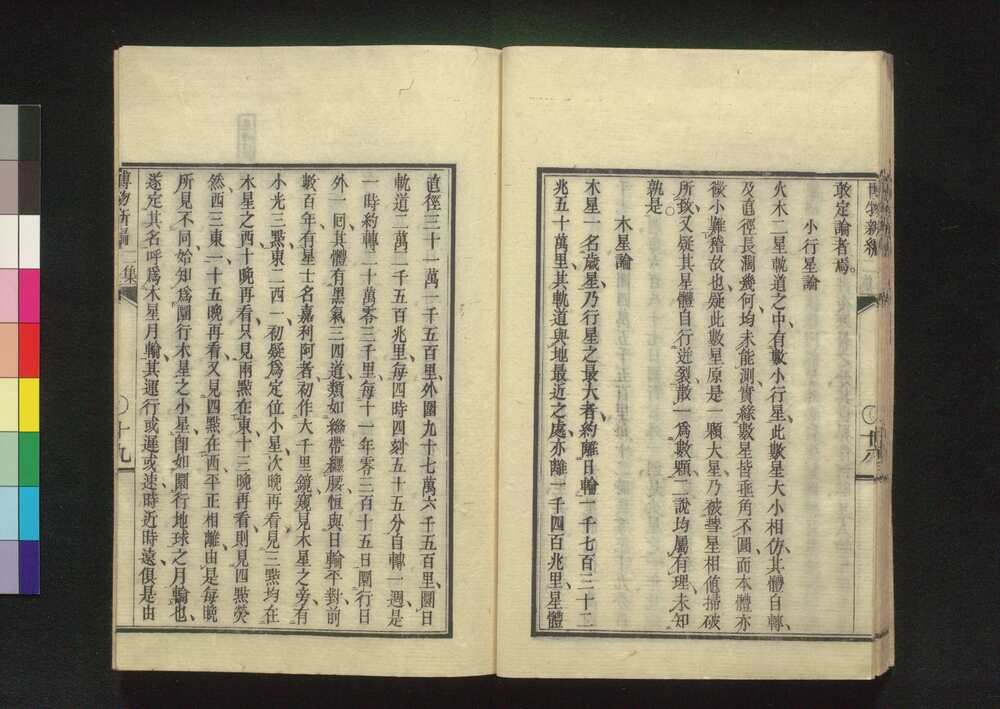 博物新編
敢定論者焉。
小行星論
火木二星軌道之中、有數小行星、此數星大小相仿、其體自轉、
及直徑長濶幾何、均未能測實、緣數星皆垂角不圓、而本體亦
微小難稽故也、疑此數星原是一顆大星、乃被彗星相値掃破
所致、又疑其星體自行迸裂、散一爲數顆、二說均屬有理、未知
孰是。
木星論
木星一名歲星、乃行星之最大者、約離日輪一千七百三十二
兆五十萬里、其軌道與地最近之處、亦離一千四百兆里、星體
直徑三十一萬一千五百里、外圍九十七萬六千五百里、圜日
軌道二萬二千五百兆里、每四時四刻五十五分自轉一週、是
一時約轉二十萬零三千里、每十一年零三百十五日圜行日
外一回、其體有黑氣三四道、類如絲帶纏腰、恆與日輪平對、前
數百年、有星士名嘉利阿者、初作大千里鏡、窺見木星之旁有
小光三點、東二西一、初疑爲定位小星、次晚再看、見三點均在
木星之西、十晚再看、只見兩點在東、十三晚再看、則見四點熒
然、西三東一、十五晚再看、又見四點在西、平正相離、由是每晚
所見不同、始知爲圜行木星之小星、卽如圜行地球之月輪也、
遂定其名、呼爲木星月輪、其運行或遲或速、時近時遠、俱是由
博物新編 二集 〇十九